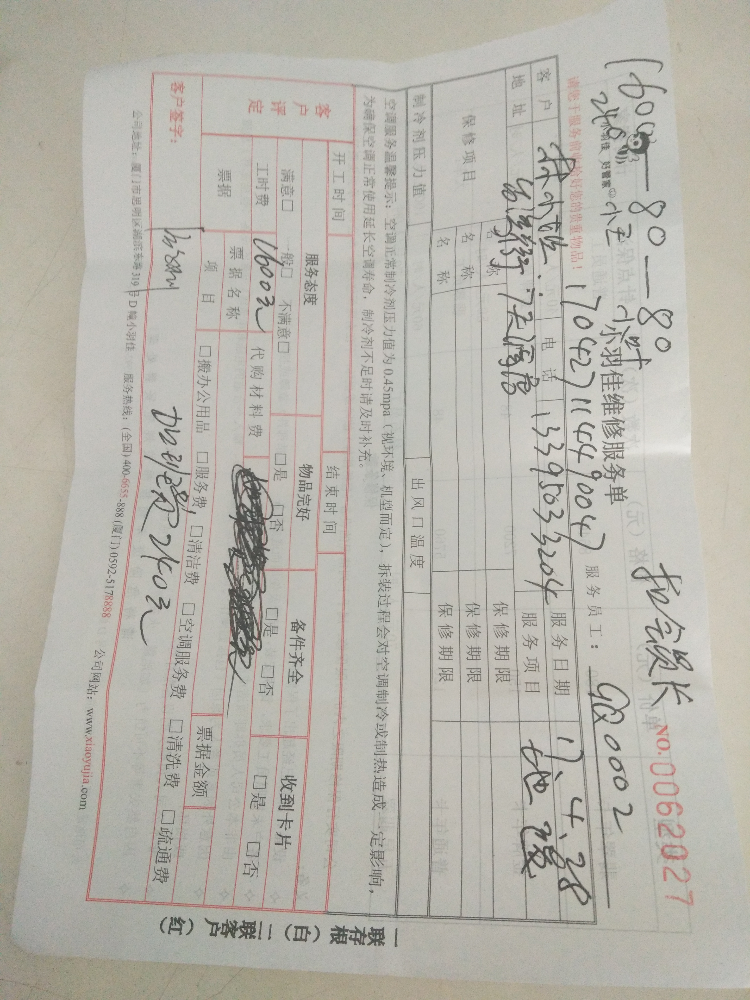 1600—80—80
小羽佳 好管家
小王
小叶
小羽佳维修服务单
NO.0062027
请您于服务前收拾好您的贵重物品！
17042711449004
服务员工：
GQ0002
客户
电话
13395033204
服务日期
17.4.28
地址
天湖
服务项目
地暖
保修项目
名称
保修期限
名称
保修期限
名称
保修期限
制冷剂压力值
出风口温度
空调服务温馨提示：空调正常制冷剂压力值为0.45mpa（视环境、机型而定），拆装过程会对空调制冷或制热造成一定影响，
为确保空调正常使用延长空调寿命，制冷剂不足时请及时补充。
开工时间
结束时间
客户评定
服务态度
物品完好
备件齐全
收到卡片
满意□ 一般□ 不满意□
□是 □否
□是 □否
□是 □否
工时费
1600元
代购材料费
票据
票据名称
票据金额
项目
□搬办公用品 □服务费 □清洁费 □空调服务费 □清洗费 □疏通费
客户签字：
240元
公司地址：厦门市思明区湖滨东路319号D幢小羽佳 服务热线：(全国) 400-6655-888 (厦门) 0592-5178888 公司网站：www.xiaoyujia.com
一联存根（白）二联客户（红）